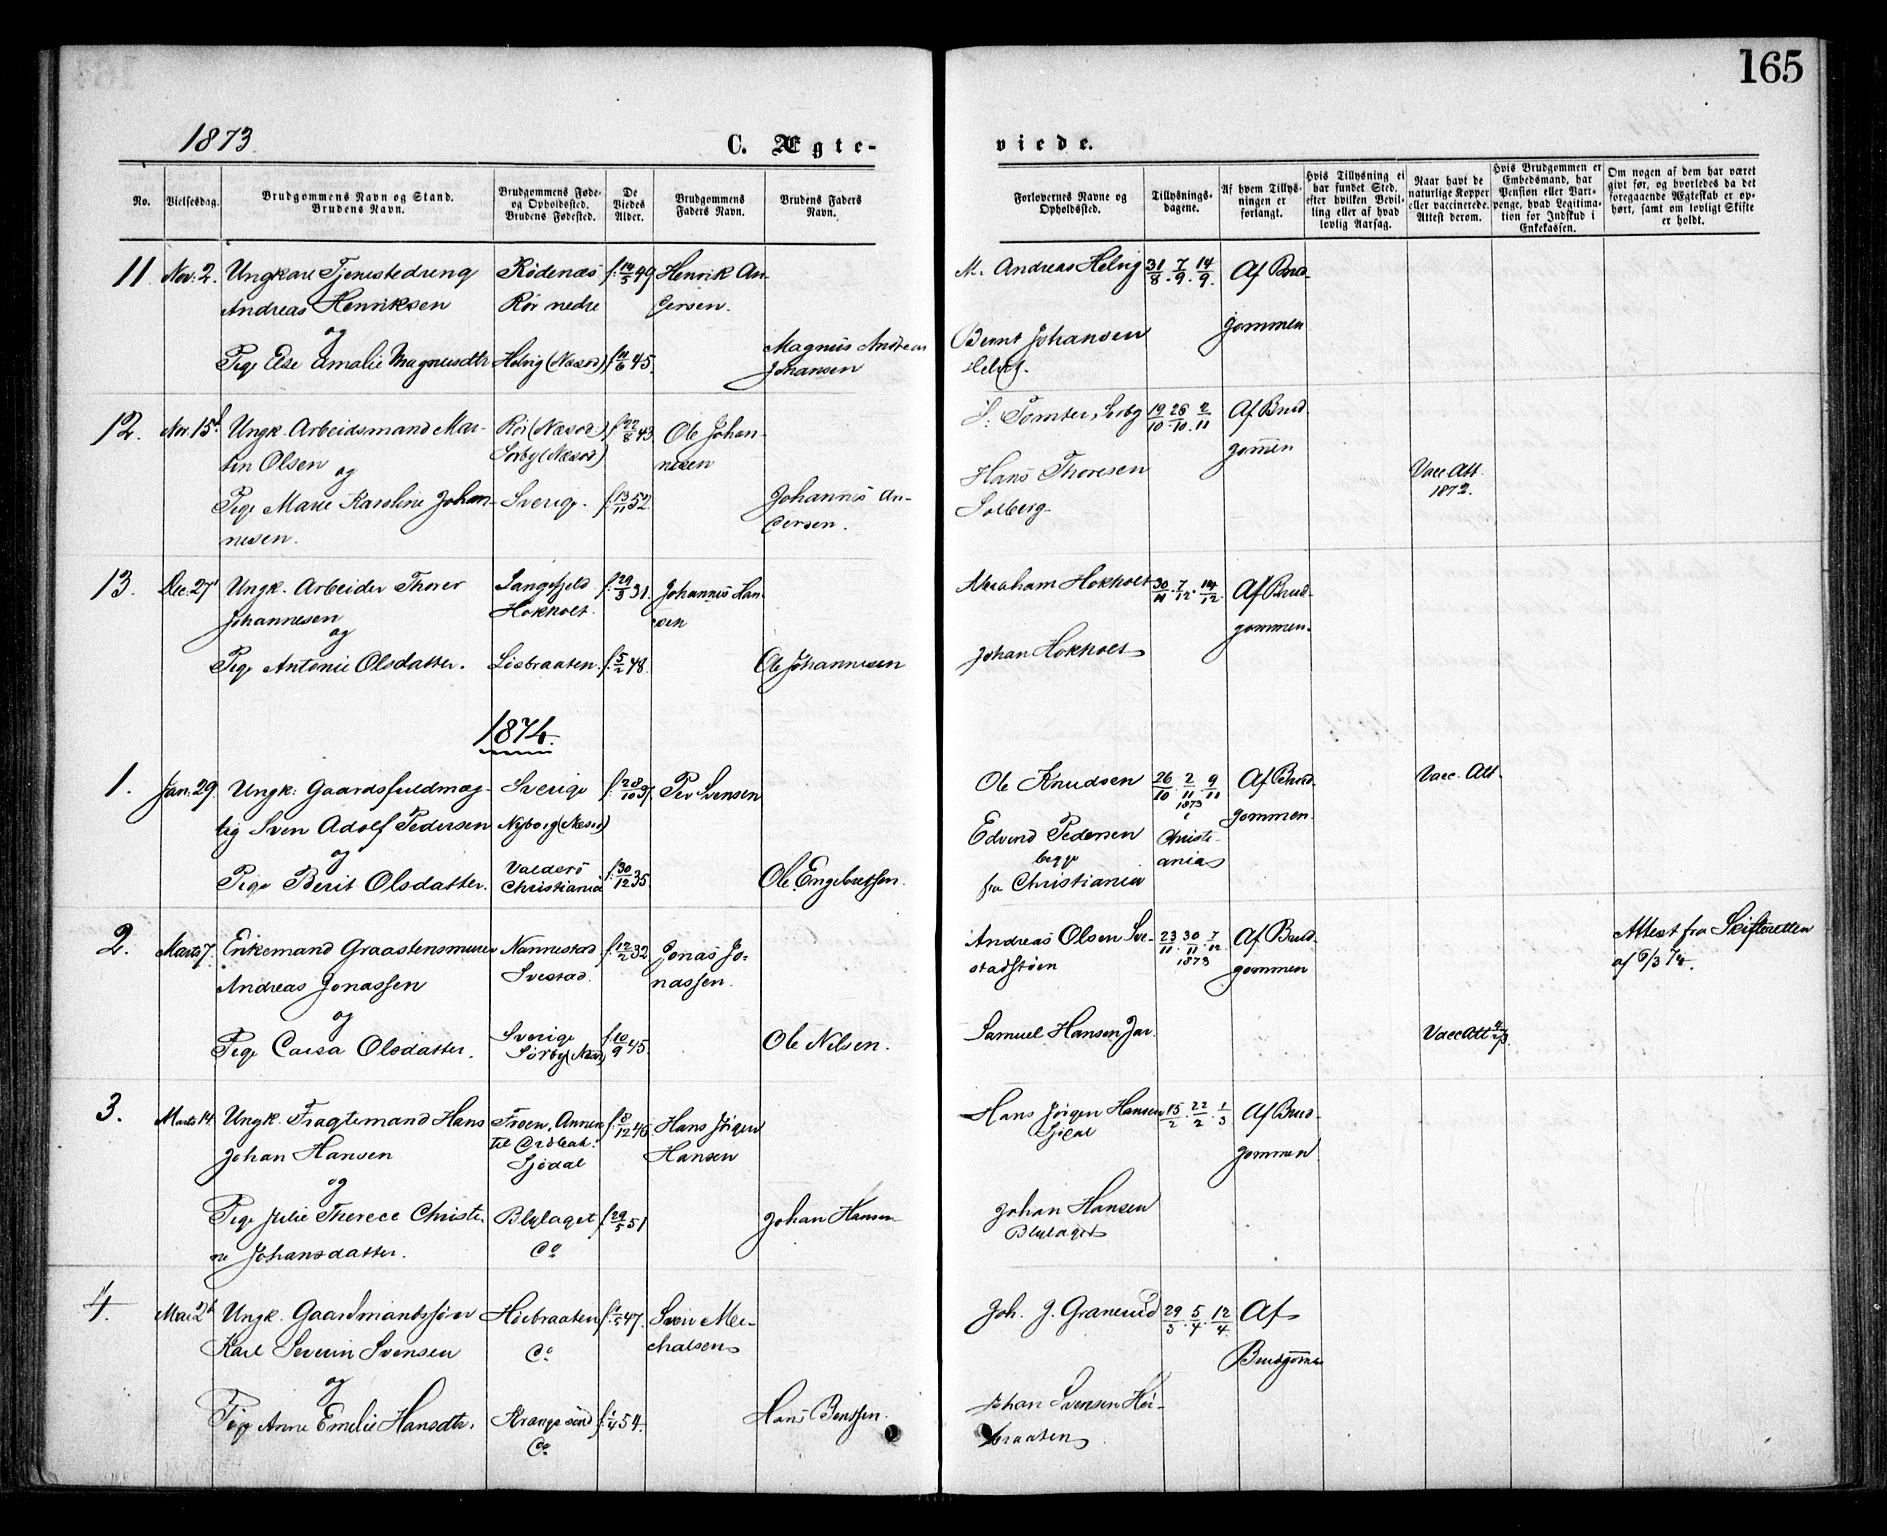 165
1873.
C. Ægte-
viede.
No.
Vielsesdag.
Brudgommens Navn og Stand.
Brudens Navn.
Brudgommens Føde-
og Opholdssted.
Brudens Fødested.
De
Viedes
Alder.
Brudgommens
Faders Navn.
Brudens Faders
Navn.
Forlovernes Navne og
Opholdssted.
Tillysnings-
dagene.
Af hvem Tillys-
ningen er
forlangt.
Hvis Tillysning ei
har fundet Sted,
efter hvilken Bevil-
ling eller af hvad
lovlig Aarsag.
Naar havt de
naturlige Kopper
eller vaccinerede.
Attest derom.
Hvis Brudgommen er
Embedsmand, har
Pension eller Vart-
penge, hvad Legitima-
tion for Indskud i
Enkekassen.
Om nogen af dem har været
givt før, og hvorledes da det
foregaaende Ægteskab er op-
hørt, samt om lovligt Skifte
er holdt.
11 Nov. 2. Ungkarl Tjenestedreng
Andreas Henriksen
og
Pige Else Amalie Magnusdtr
Rödenæs
Rör nedre
Helvig (Næsod)
f. 14/5 49
f. 11/6 45.
Henrik An-
dersen.
Magnus Andreas
Johansen
M. Andreas Helvig
Bernt Johansen
Helvig.
31/8. 7/9. 14/9.
Af Brud-
gommen
12. Nov. 15 Ungk. Arbeidsmand Mar-
tin Olsen
og
Pige Marie Karoline Johan-
nesen.
Rör (Næsod)
Sørby (Næsod)
Sverige.
f. 22/8 43
f. 13/11 52.
Ole Johan-
nesen
Johannes An-
dersen.
Tomter, Sørby
Hans Thoresen
Solberg
19/10 26/10. 2/11
Af Brud
gommen
Vacc. Att.
1872.
13. Dec. 27 Ungk. Arbeider Thorer
Johannesen
og
Pige Antonie Olsdatter.
Langefjeld
Hokholt.
Løsbraaten.
f. 29/3 31.
f. 5/2 48.
Johannes Han-
sen
Ole Johannesen
Abraham Hokholt
Johan Hokholt
30/11. 7/12. 14/12.
Af Brud-
gommen.
1874.
1. Jan. 29. Ungk: Gaardsfuldmæg-
tig Sven Adolf Pedersen
og
Pige Berit Olsdatter.
Sverige
Nyborg (Næsod)
Valders
Christiania
f. 28/10 37.
f. 30/12 35.
Per Svensen
Ole Engebretsen.
Ole Knudsen
Edvard Pedersen
begge
fra Christiania
26/10. 2/11. 9/11
1873
i
Christi-
ania
Af Brud-
gommen.
Vacc. Att.
2. Marts 7. Enkemand Graastensmurer
Andreas Jonassen
og
Pige Caisa Olsdatter.
Nannestad
Svestad.
Sverige
Sørby (Næs)
f. 12/2 32
f. 10/9 45.
Jonas Jo-
nassen.
Ole Nilsen.
Andreas Olsen Sve-
stadstöen
Samuel Hansen Jar.
23/11. 30/11. 7/12
1873
Af Brud-
gommen
Vacc Att
Attest fra Skifteretten
af 6/3 74.
3. Marts 14. Ungk. Fragtemand Hans
Johan Hansen
og
Pige Julie Therece Christi-
ne Johansdatter.
Froen, Annex
til Dröbak.
Sjödal
Blylaget
Do
f. 8/12 46.
f. 29/5 51
Hans Jörgen
Hansen
Johan Hansen
Hans Jörgen Hansen
Sjödal
Johan Hansen
Blylaget
15/2. 22/2. 1/3
Af Brud-
gommen
4. Mai 2 Ungk. Gaardmandssön
Karl Severin Svensen
og
Pige Anne Emelie Hansdtr.
Höibraaten
Do
Krange sund
Do
47.
54.
Sven Mi-
chalsen
Hans Bentsen.
Joh. J. Granerud
Johan Svensen Höi-
braaten
29/3. 5/4. 12/4
Af
Brudgomm